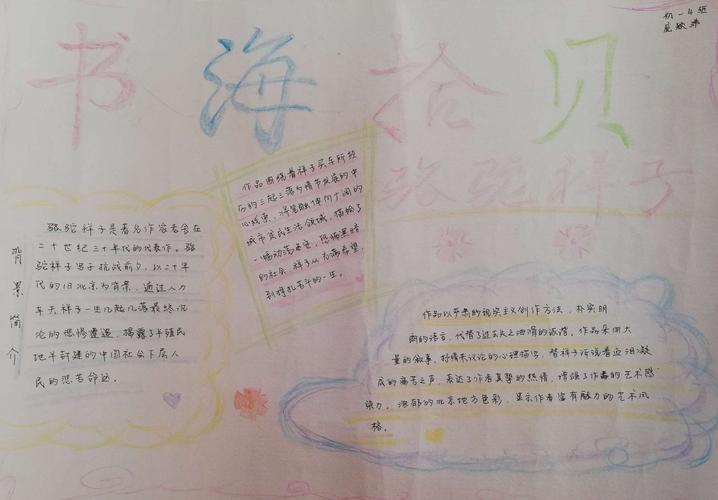 初一4班
书海拾贝
骆驼祥子
背景简介
骆驼祥子是著名作家老舍在
二十世纪三十年代的代表作。骆
驼祥子写于抗战前夕,以二十年
代的旧北京为背景,通过人力
车夫祥子一生几起几落最终沉
沦的悲惨遭遇,揭露了半殖民
地半封建的中国社会下层人
民的悲苦命运。
作品围绕着祥子买车所经
历的三起三落为情节发展的中
心线索,将笔触伸向广阔的
城市贫民生活领域,描绘了
一幅动荡不安,恐怖黑暗
的社会,祥子从充满希望
到挣扎苦斗的一生。
作品以严肃的现实主义创作方法,朴实明
的语言,代替了过去失之油滑的诙谐,作品采用大
量的叙事,抒情末议论的心理描写,替祥子所说着血泪凝
成的痛苦之声,表达了作者真挚的热情,增强了作品的艺术感
染力。浓郁的北京地方色彩,显示作者富有魅力的艺术风
格。